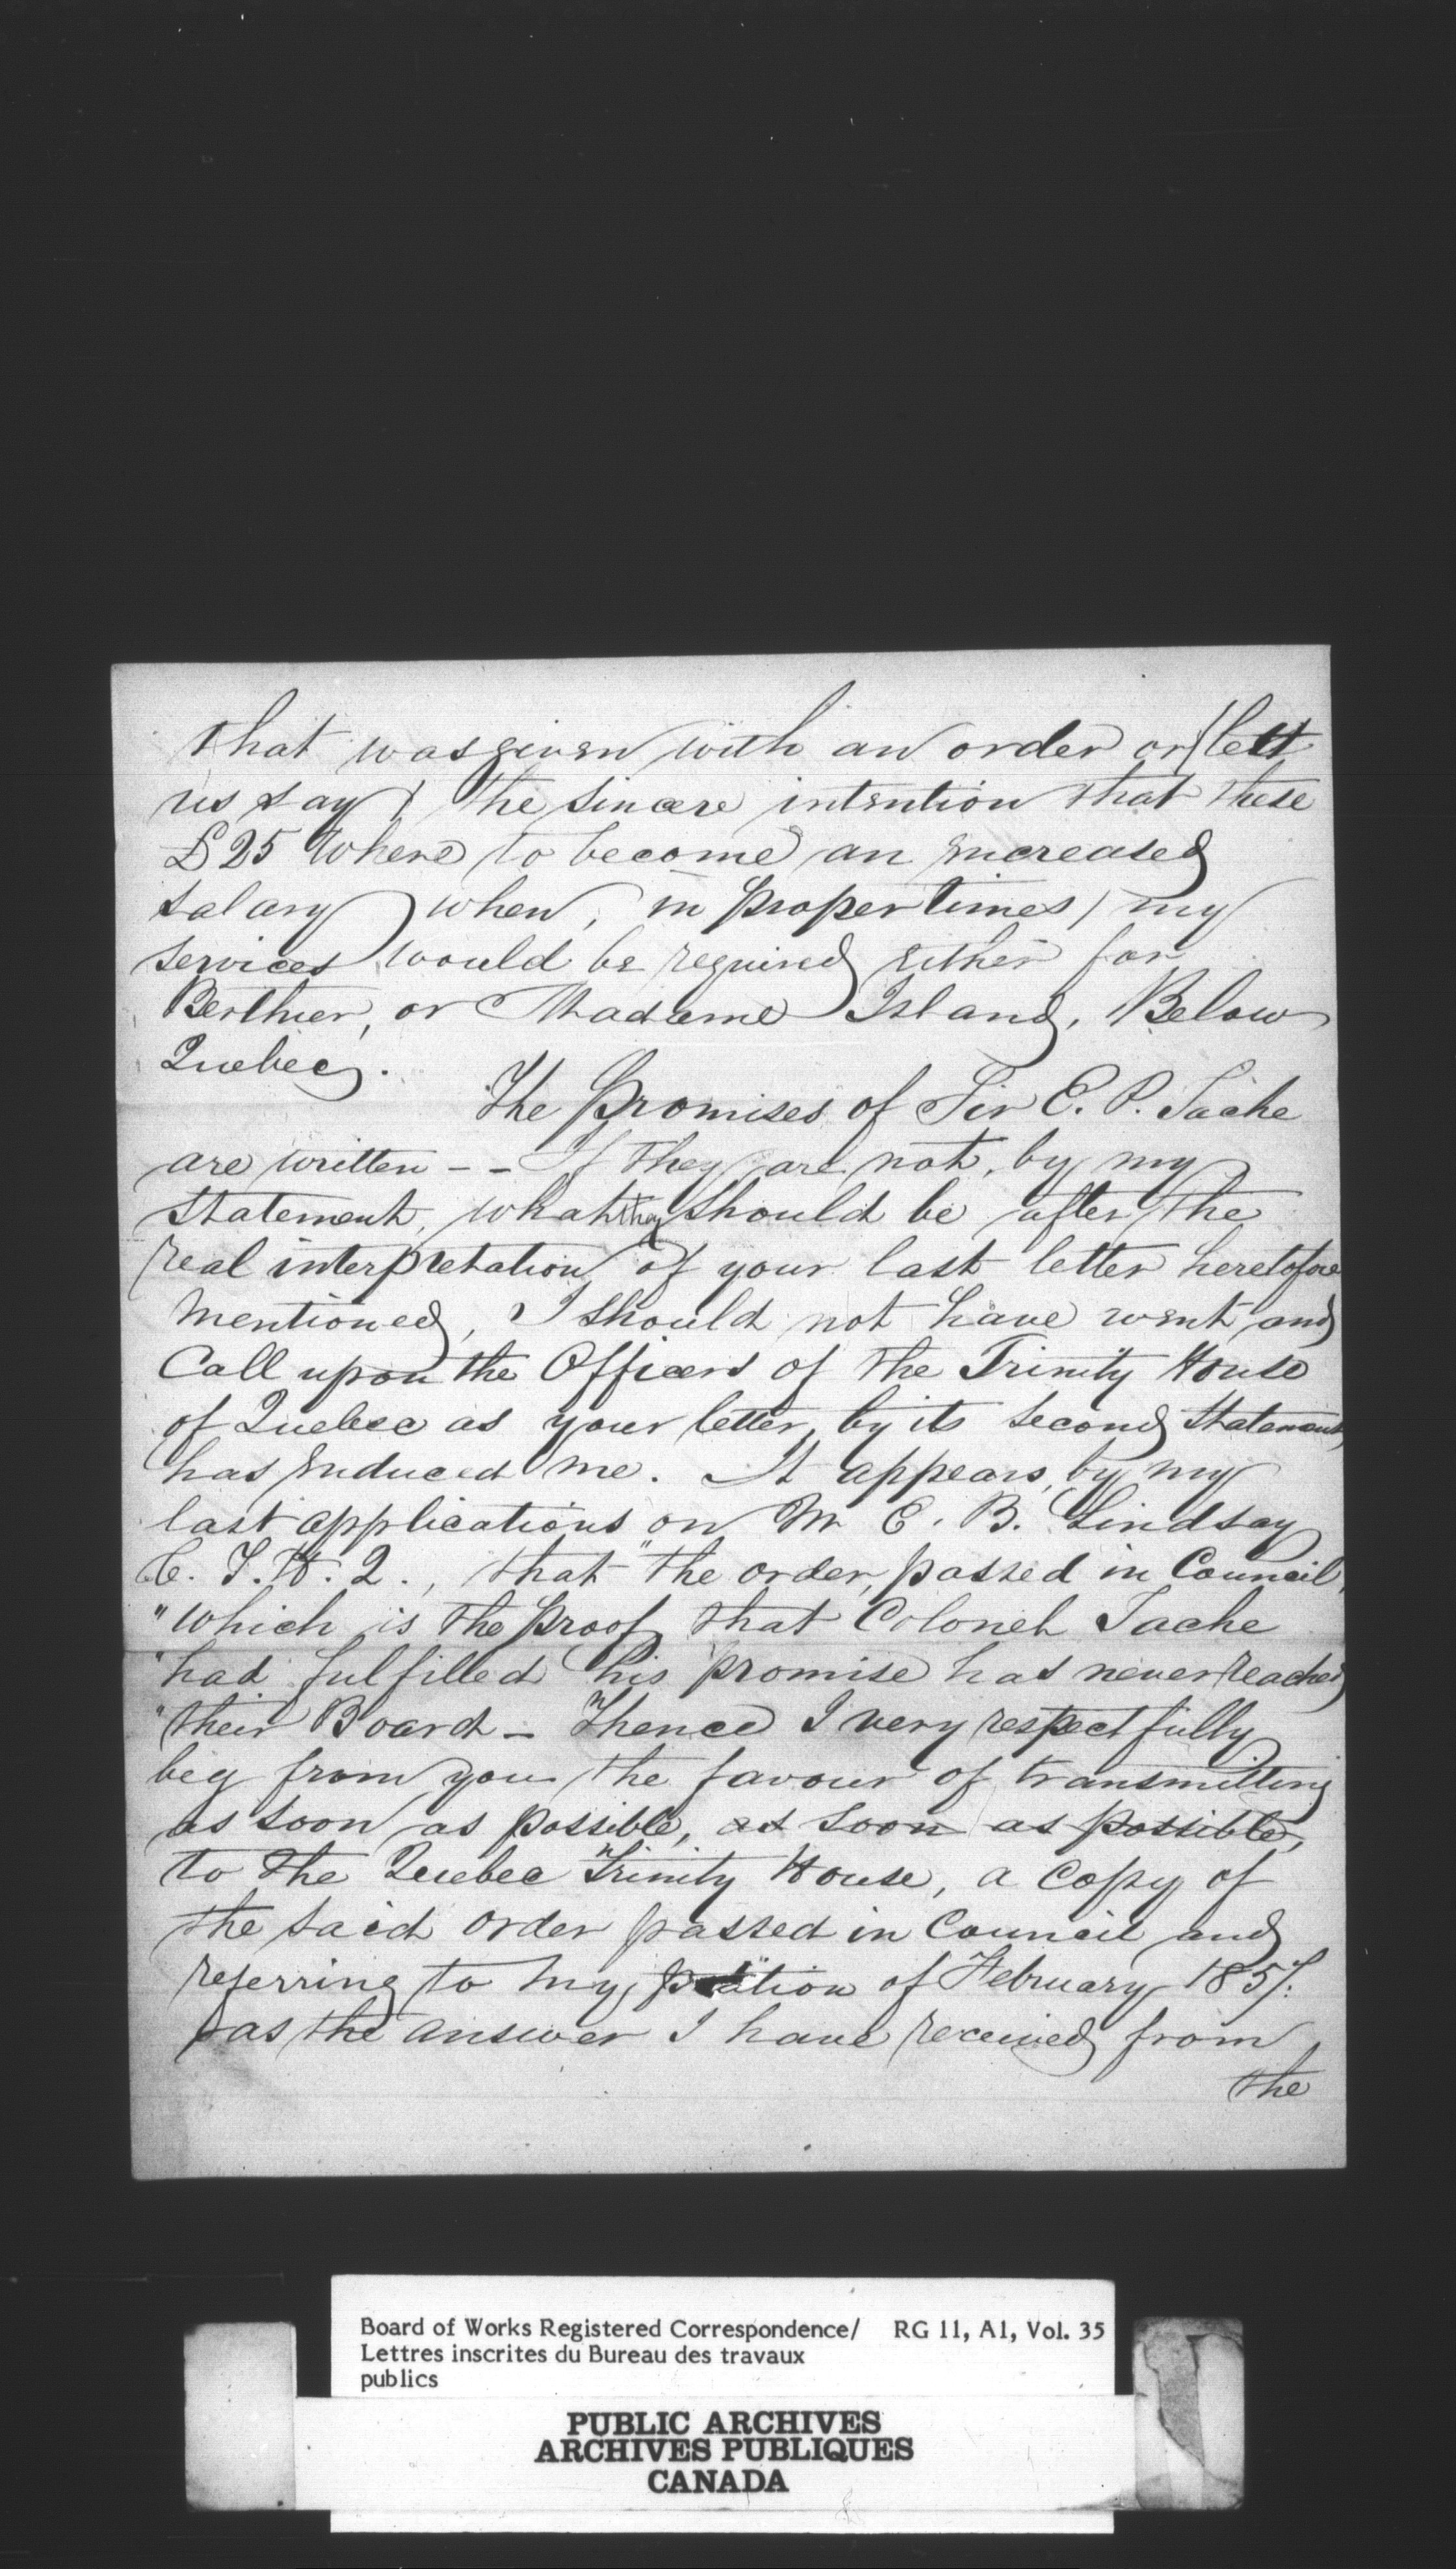 that was given with an order or (lett
us say) the sincere intention that these
£25 where to become an encreased
salary when, in proper times, my
services would be required either for
Berthier, or Madame Island, Below
Quebec.
The Promises of Sir E. P. Tache
are written - - If they are not, by my
statement, what they should be after the
real interpretation of your last letter heretofore
mentioned, I should not have went and
Call upon the Officers of the Trinity House
of Quebec as your letter, by its second statement,
has enduced me. It appears, by my
last applications on Mr E. B. Lindsay
C. T. H. Q., that "the order, passed in Council,
"which is the proof that Colonel Tache
"had fulfilled his promise has never reached
"their Board - Thence I very respectfully
beg from you the favour of transmitting
as soon as possible, as soon as possible,
to the Quebec Trinity House, a Copy of
the said order passed in Council and
referring to my petition of February 1857.
as the answer I have received from
the
Board of Works Registered Correspondence/ RG 11, A1, Vol. 35
Lettres inscrites du Bureau des travaux
publics
PUBLIC ARCHIVES
ARCHIVES PUBLIQUES
CANADA